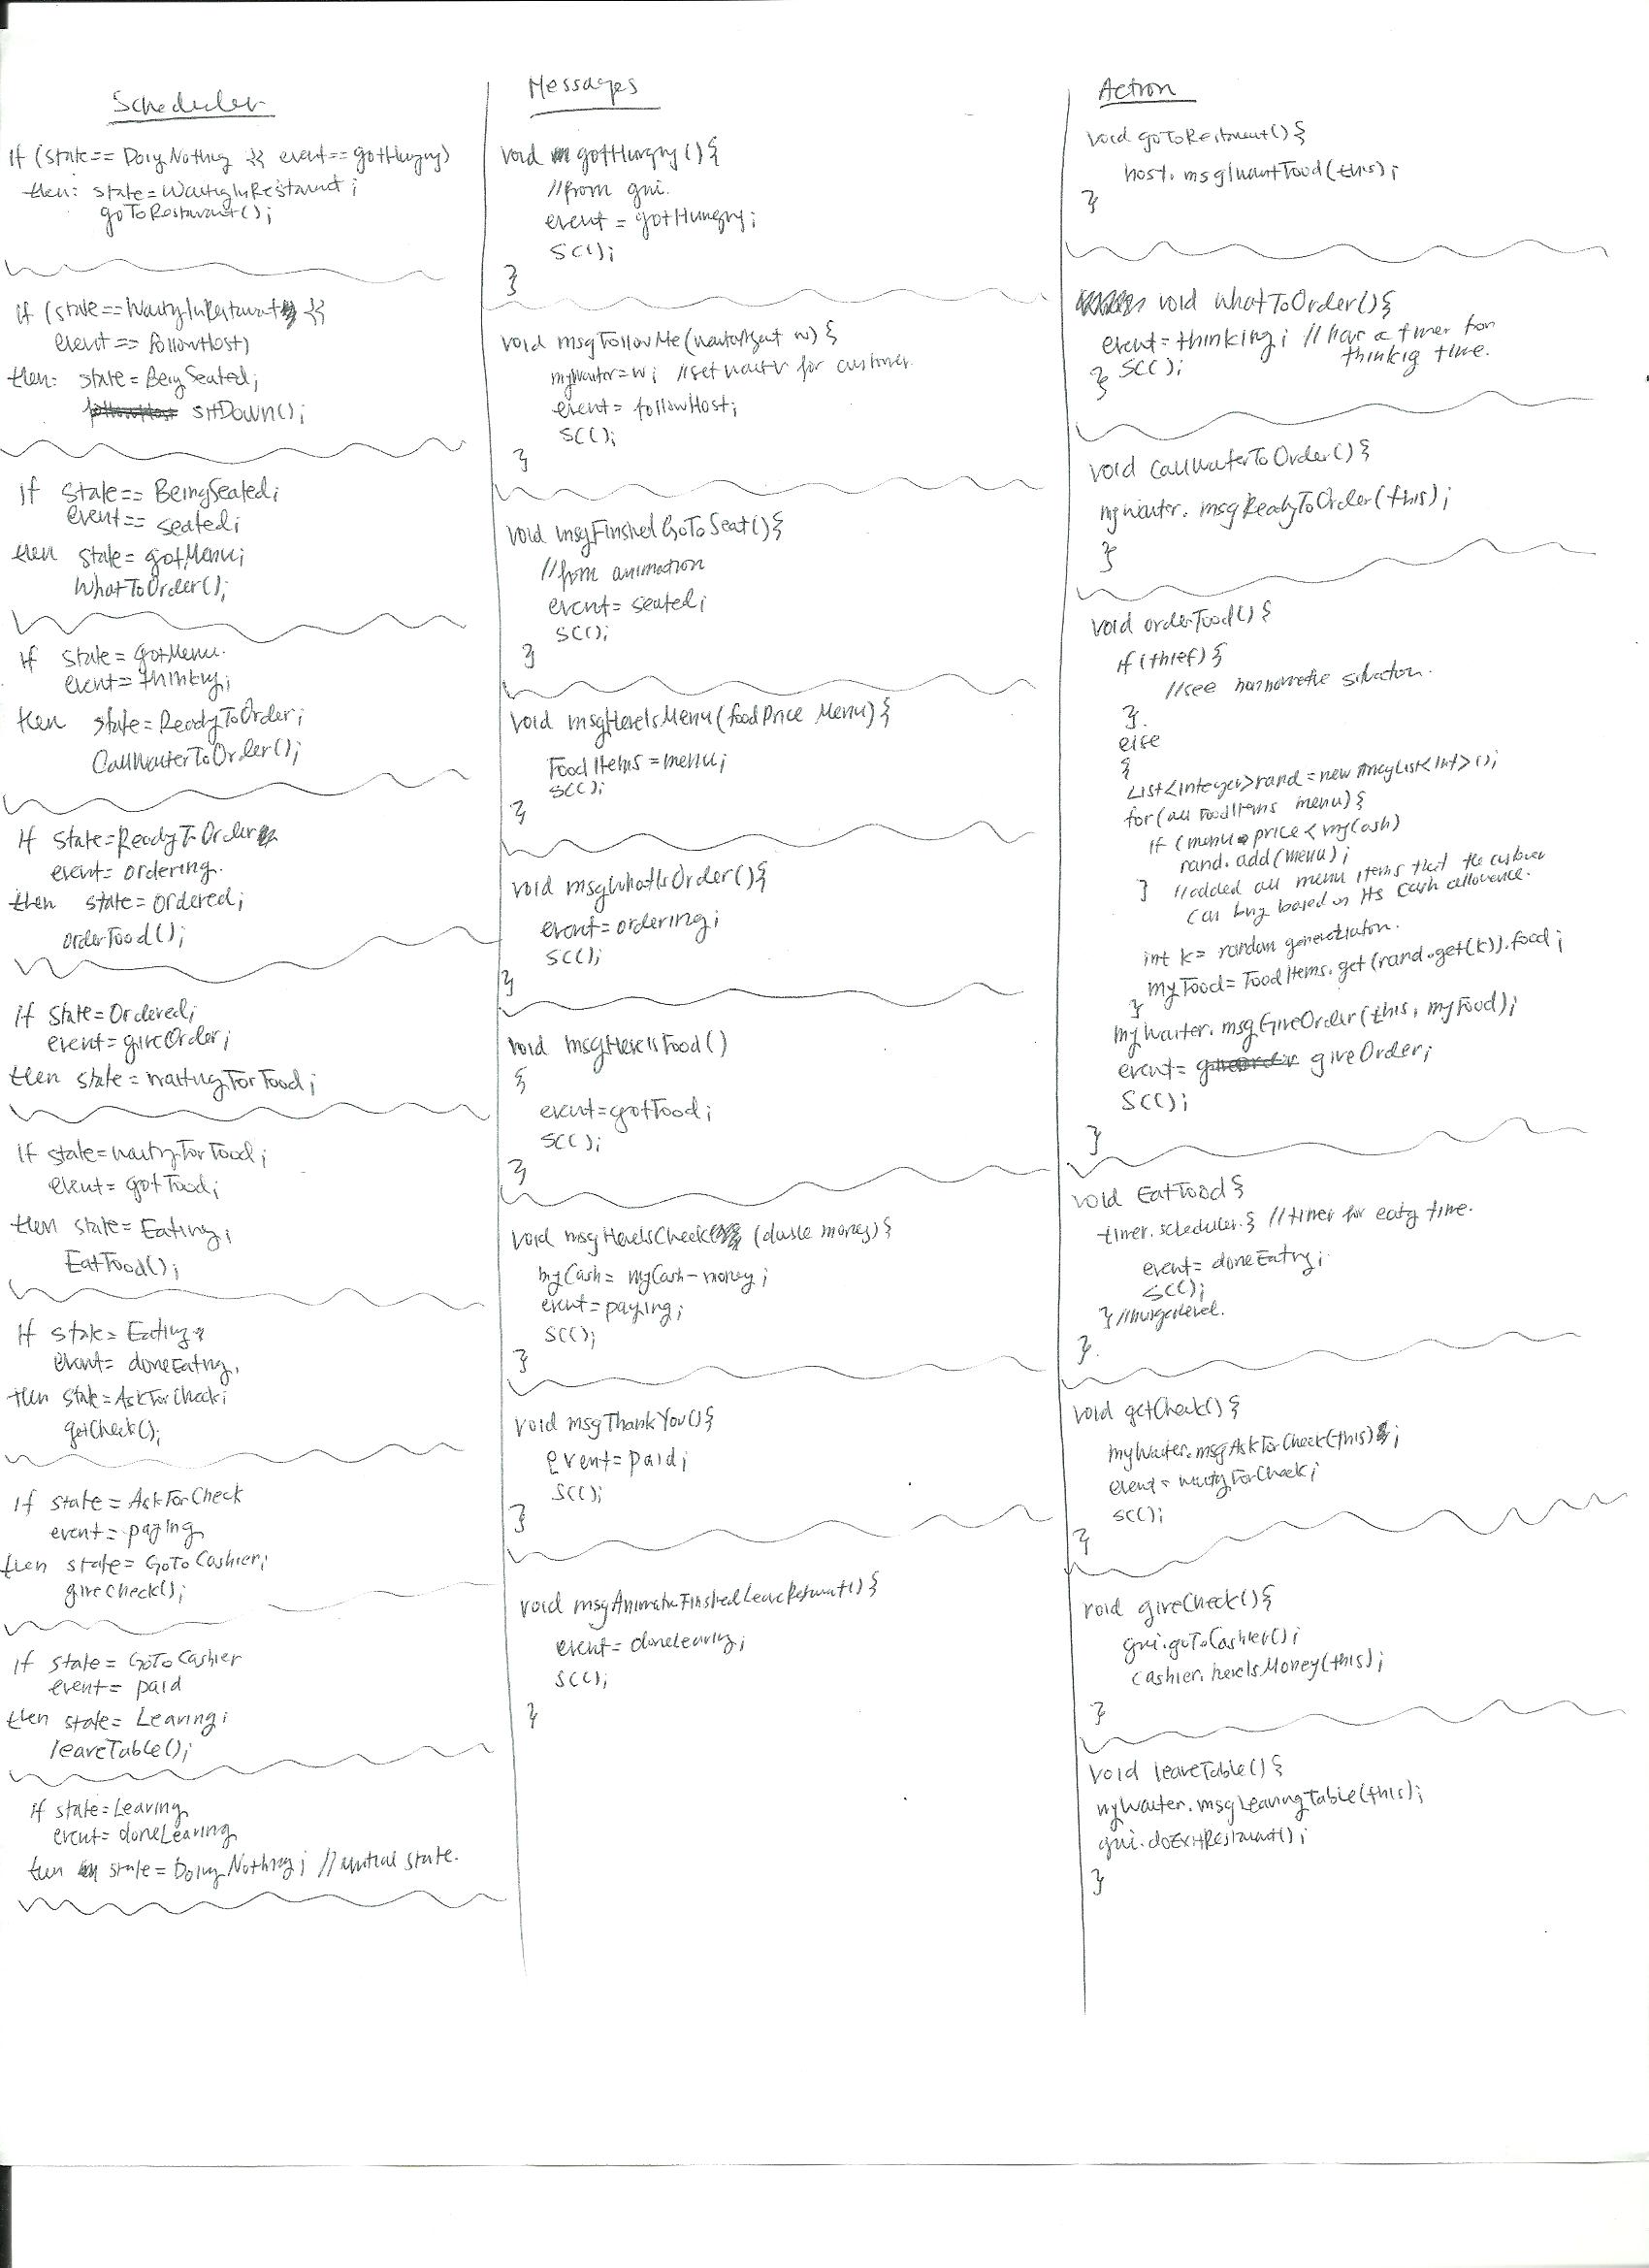 Scheduler
if (state== DoingNothing && event==gotHungry)
then: state=WaitingInRestaurant;
goToRestaurant();
if (state==WaitingInRestaurant &&
event == followHost)
then: state=BeingSeated;
sitDown();
if state== BeingSeated;
event== seated;
then state= gotMenu;
WhatToOrder();
if state= gotMenu.
event= thinking;
then state=ReadyToOrder;
CallWaiterToOrder();
If state=ReadyToOrder
event= ordering.
then state= ordered;
orderFood();
if state=Ordered;
event=giveOrder;
then state=waitingForFood;
if state=waitingForFood;
event= gotFood;
then state= Eating;
EatFood();
If state= Eating;
event= doneEating,
then state=AskForCheck;
getCheck();
If state= AskForCheck
event= paying
then state= GoToCashier;
giveCheck();
if state= GoToCashier
event= paid
then state= Leaving;
leaveTable();
if state=Leaving
event=doneLeaving
then state=DoingNothing; //initial state.
Messages
void gotHungry(){
//from gui.
event = gotHungry;
SC();
}
void msgFollowMe(waiterAgent w){
myWaiter=w; //set waiter for customer.
event= followHost;
SC();
}
void msgFinishedGoToSeat(){
//from animation
event= seated;
SC();
}
void msgHereIsMenu(foodPrice Menu){
FoodItems=menu;
SC();
}
void msgWhatIsOrder(){
event=ordering;
SC();
}
void msgHereIsFood()
{
event=gotFood;
SC();
}
void msgHereIsCheck (double money){
myCash= myCash-money;
event=paying;
SC();
}
void msgThankYou(){
event=paid;
SC();
}
void msgAnimationFinishedLeaveRestaurant(){
event= doneLeaving;
SC();
}
Action
void goToRestaurant(){
host. msgIWantFood(this);
}
void whatToOrder(){
event=thinking; //has a timer for
thinking time.
SC();
}
void CallWaiterToOrder(){
myWaiter. msgReadyToOrder(this);
}
void orderFood(){
if(thief){
//see nonnormative situation.
}.
else
{
List<Integer>rand=new ArrayList<Int>();
for(all FoodItems menu){
if (menu.price<myCash)
rand.add(menu);
} //added all menu items that the customer
can buy based on its cash allowance.
int k= random generation.
myFood= FoodItems.get(rand.get(k)).food;
}
myWaiter. msgGiveOrder(this, myFood);
event= giveOrder;
SC();
}
void EatFood{
timer.scheduler.{ //timer for eating time.
event= doneEating;
SC();
} //hungerlevel.
}.
void getCheck(){
myWaiter.msgAskForCheck(this);
event= waitingForCheck;
SC();
}
void giveCheck(){
gui.goToCashier();
cashier.hereIsMoney(this);
}
void leaveTable(){
myWaiter.msgLeavingTable(this);
gui.doExitRestaurant();
}